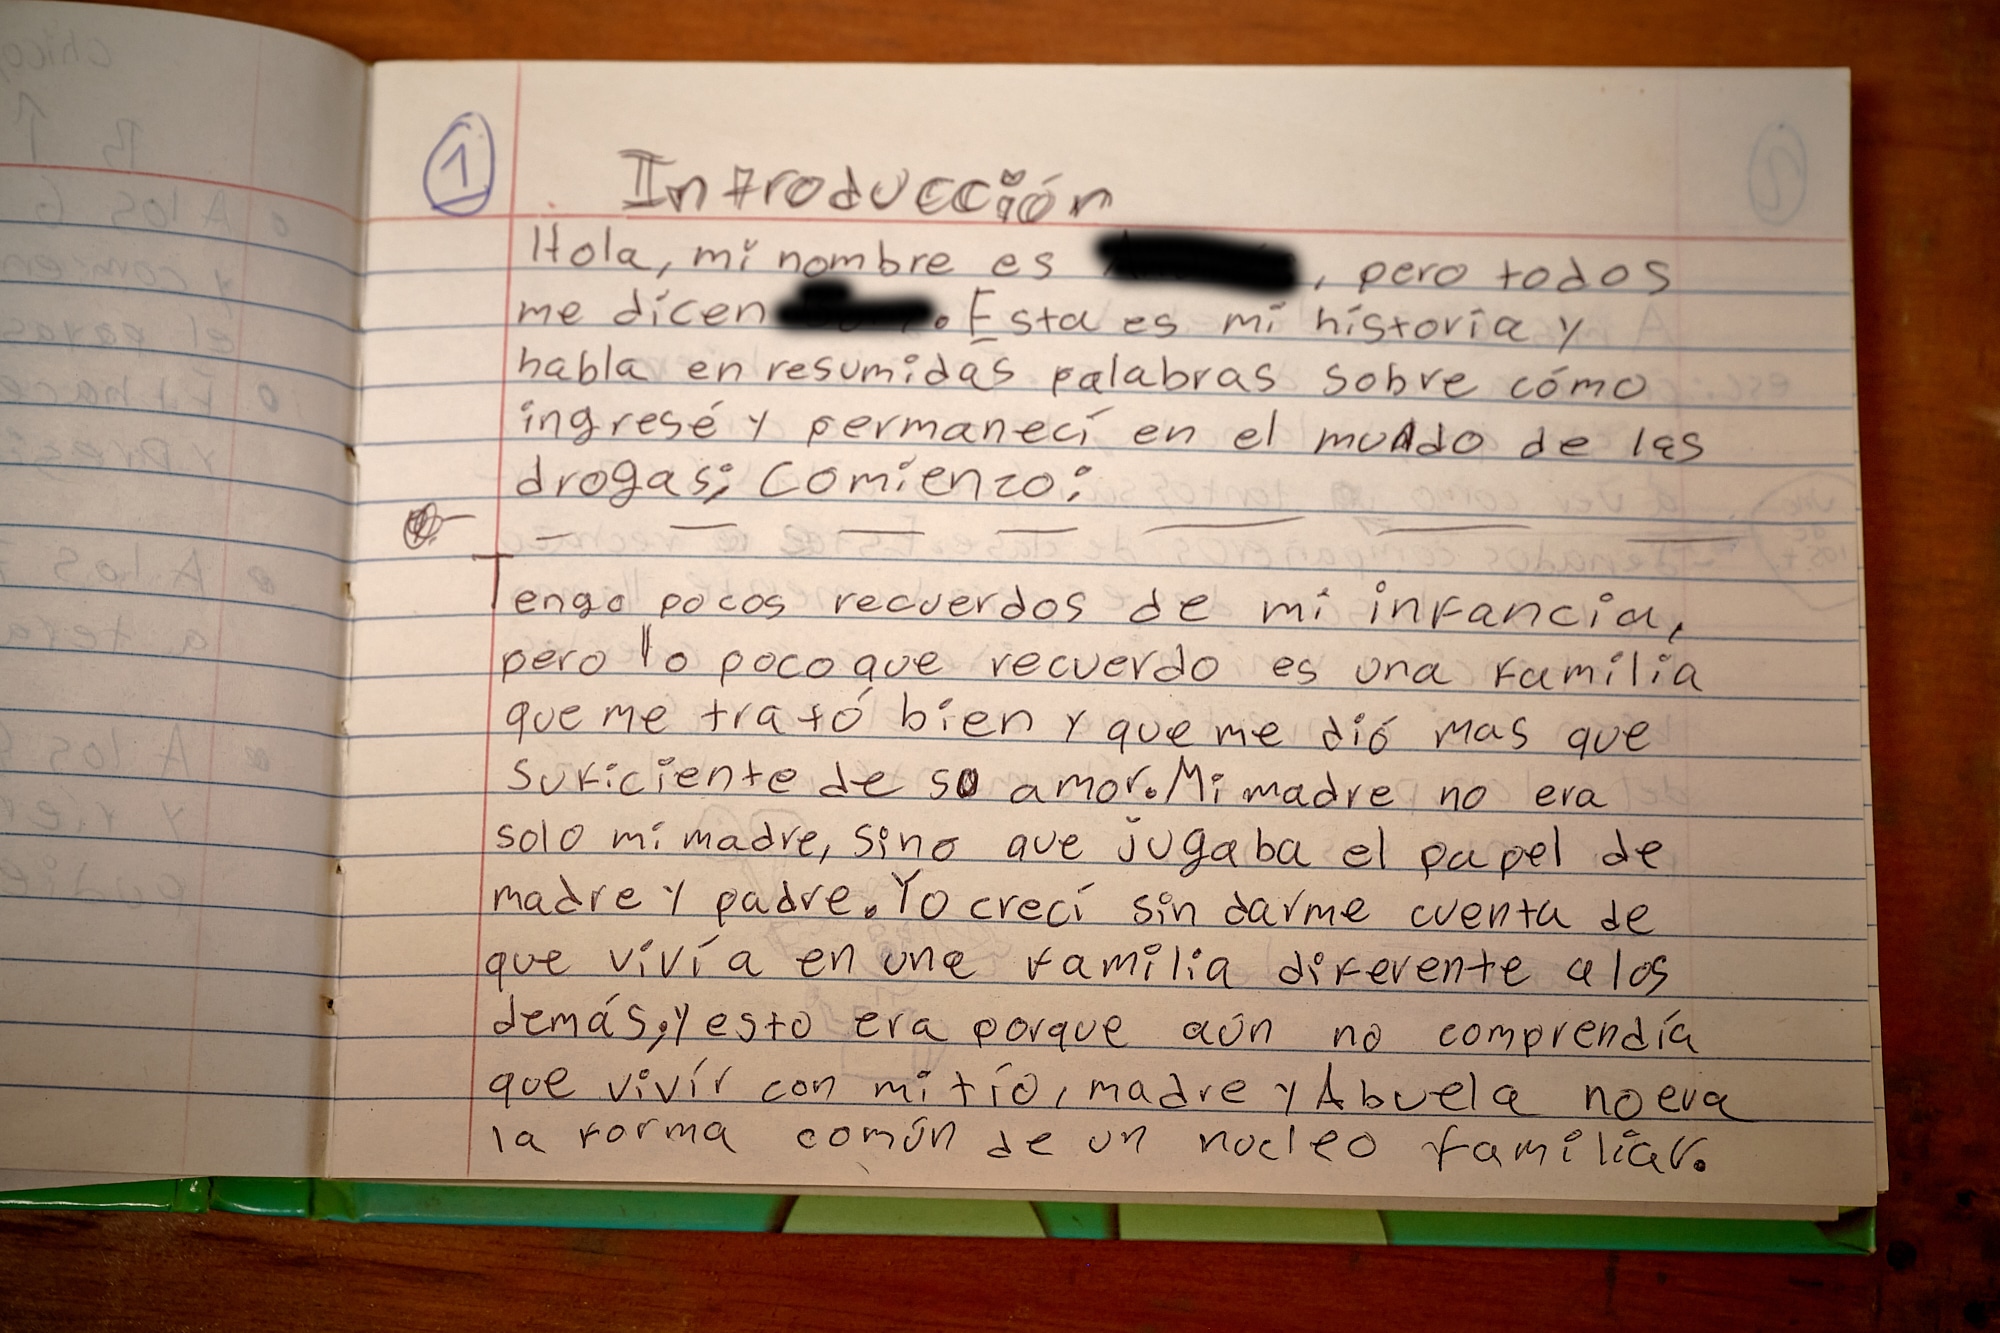 1
Introducción
Hola, mi nombre es , pero todos
me dicen . Esta es mi historia y
habla en resumidas palabras sobre cómo
ingresé y permanecí en el mundo de las
drogas; Comienzo:
Tengo pocos recuerdos de mi infancia,
pero lo poco que recuerdo es una familia
que me trató bien y que me dió mas que
suficiente de su amor. Mi madre no era
solo mi madre, sino que jugaba el papel de
madre y padre. Yo crecí sin darme cuenta de
que vivía en una familia diferente a los
demás, y esto era porque aún no comprendía
que vivír con mi tío, madre y Abuela no era
la forma común de un nucleo familiar.